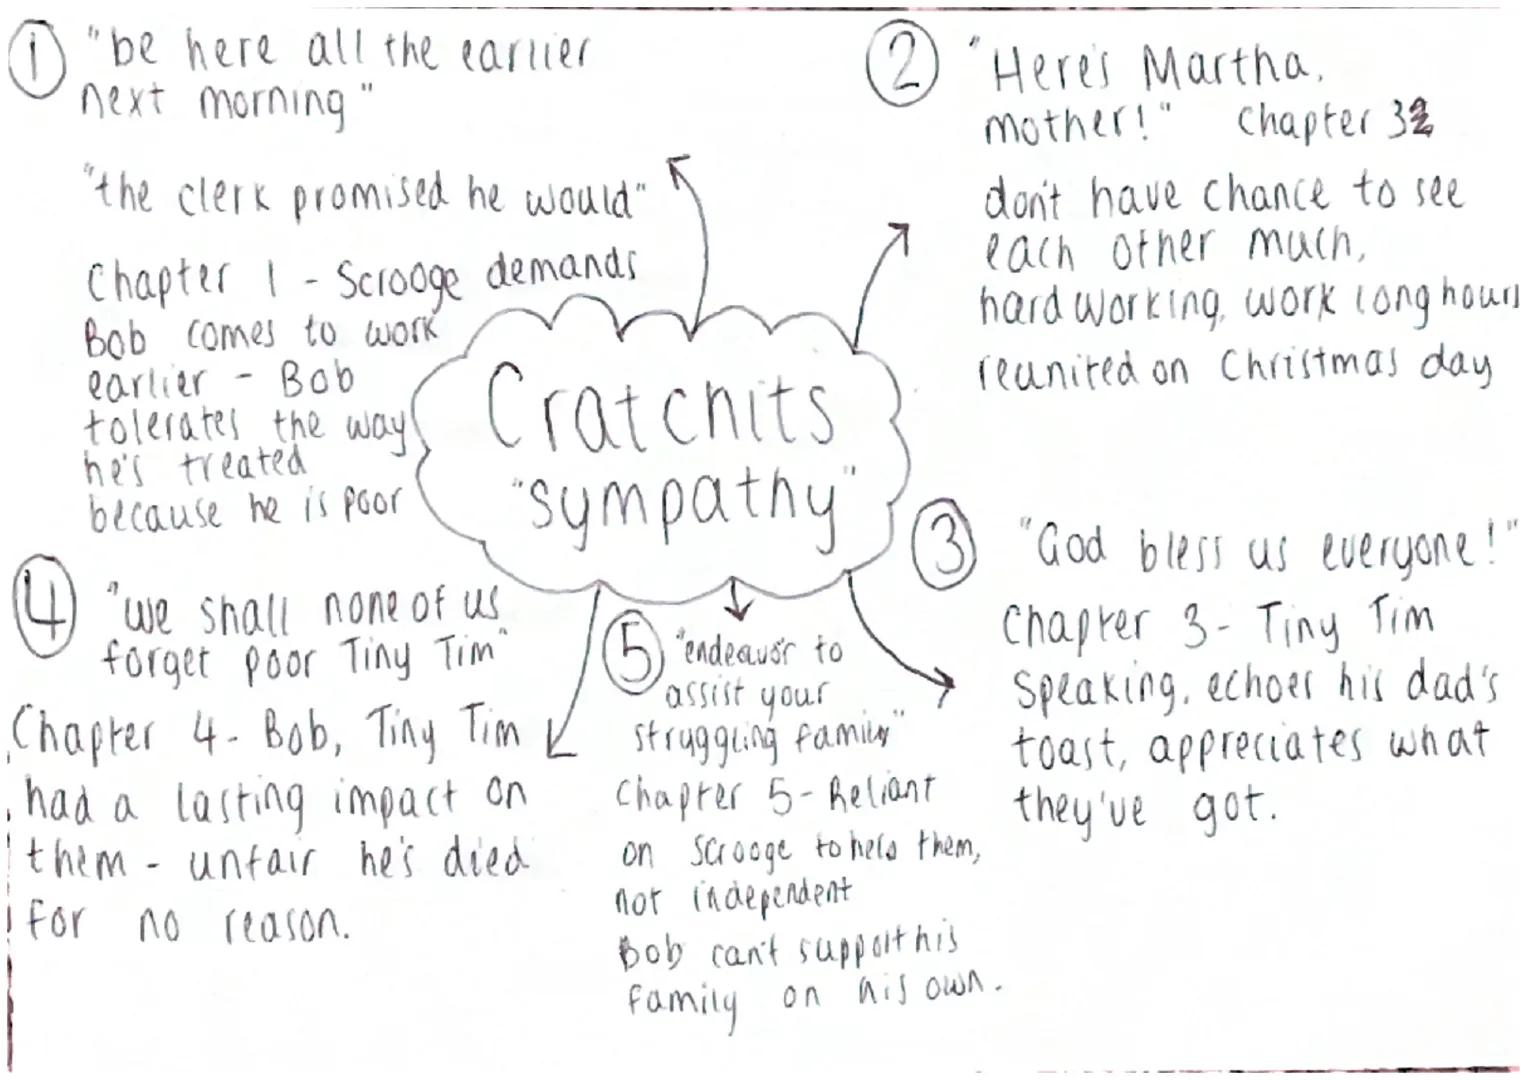 ① "be here all the earlier
next morning"
"the clerk promised he would"
Chapter 1 - Scrooge demands
Bob comes to work
earlier - Bob
tolerates the way
he's treated
because he is poor
② "Here's Martha,
mother!" Chapter 3
don't have chance to see
each other much,
hardworking, work long hours
reunited on Christmas day
Cratchits
"sympathy"
③ "God bless us everyone!"
Chapter 3 - Tiny Tim
speaking, echoes his dad's
toast, appreciates what
they've got.
④ "we shall none of us
forget poor Tiny Tim"
Chapter 4 - Bob, Tiny Tim
had a lasting impact on
them - unfair he's died
for no reason.
⑤ "endeavor to
assist your
struggling family"
Chapter 5 - Reliant
on Scrooge to help them,
not independent
Bob can't support his
family on his own.